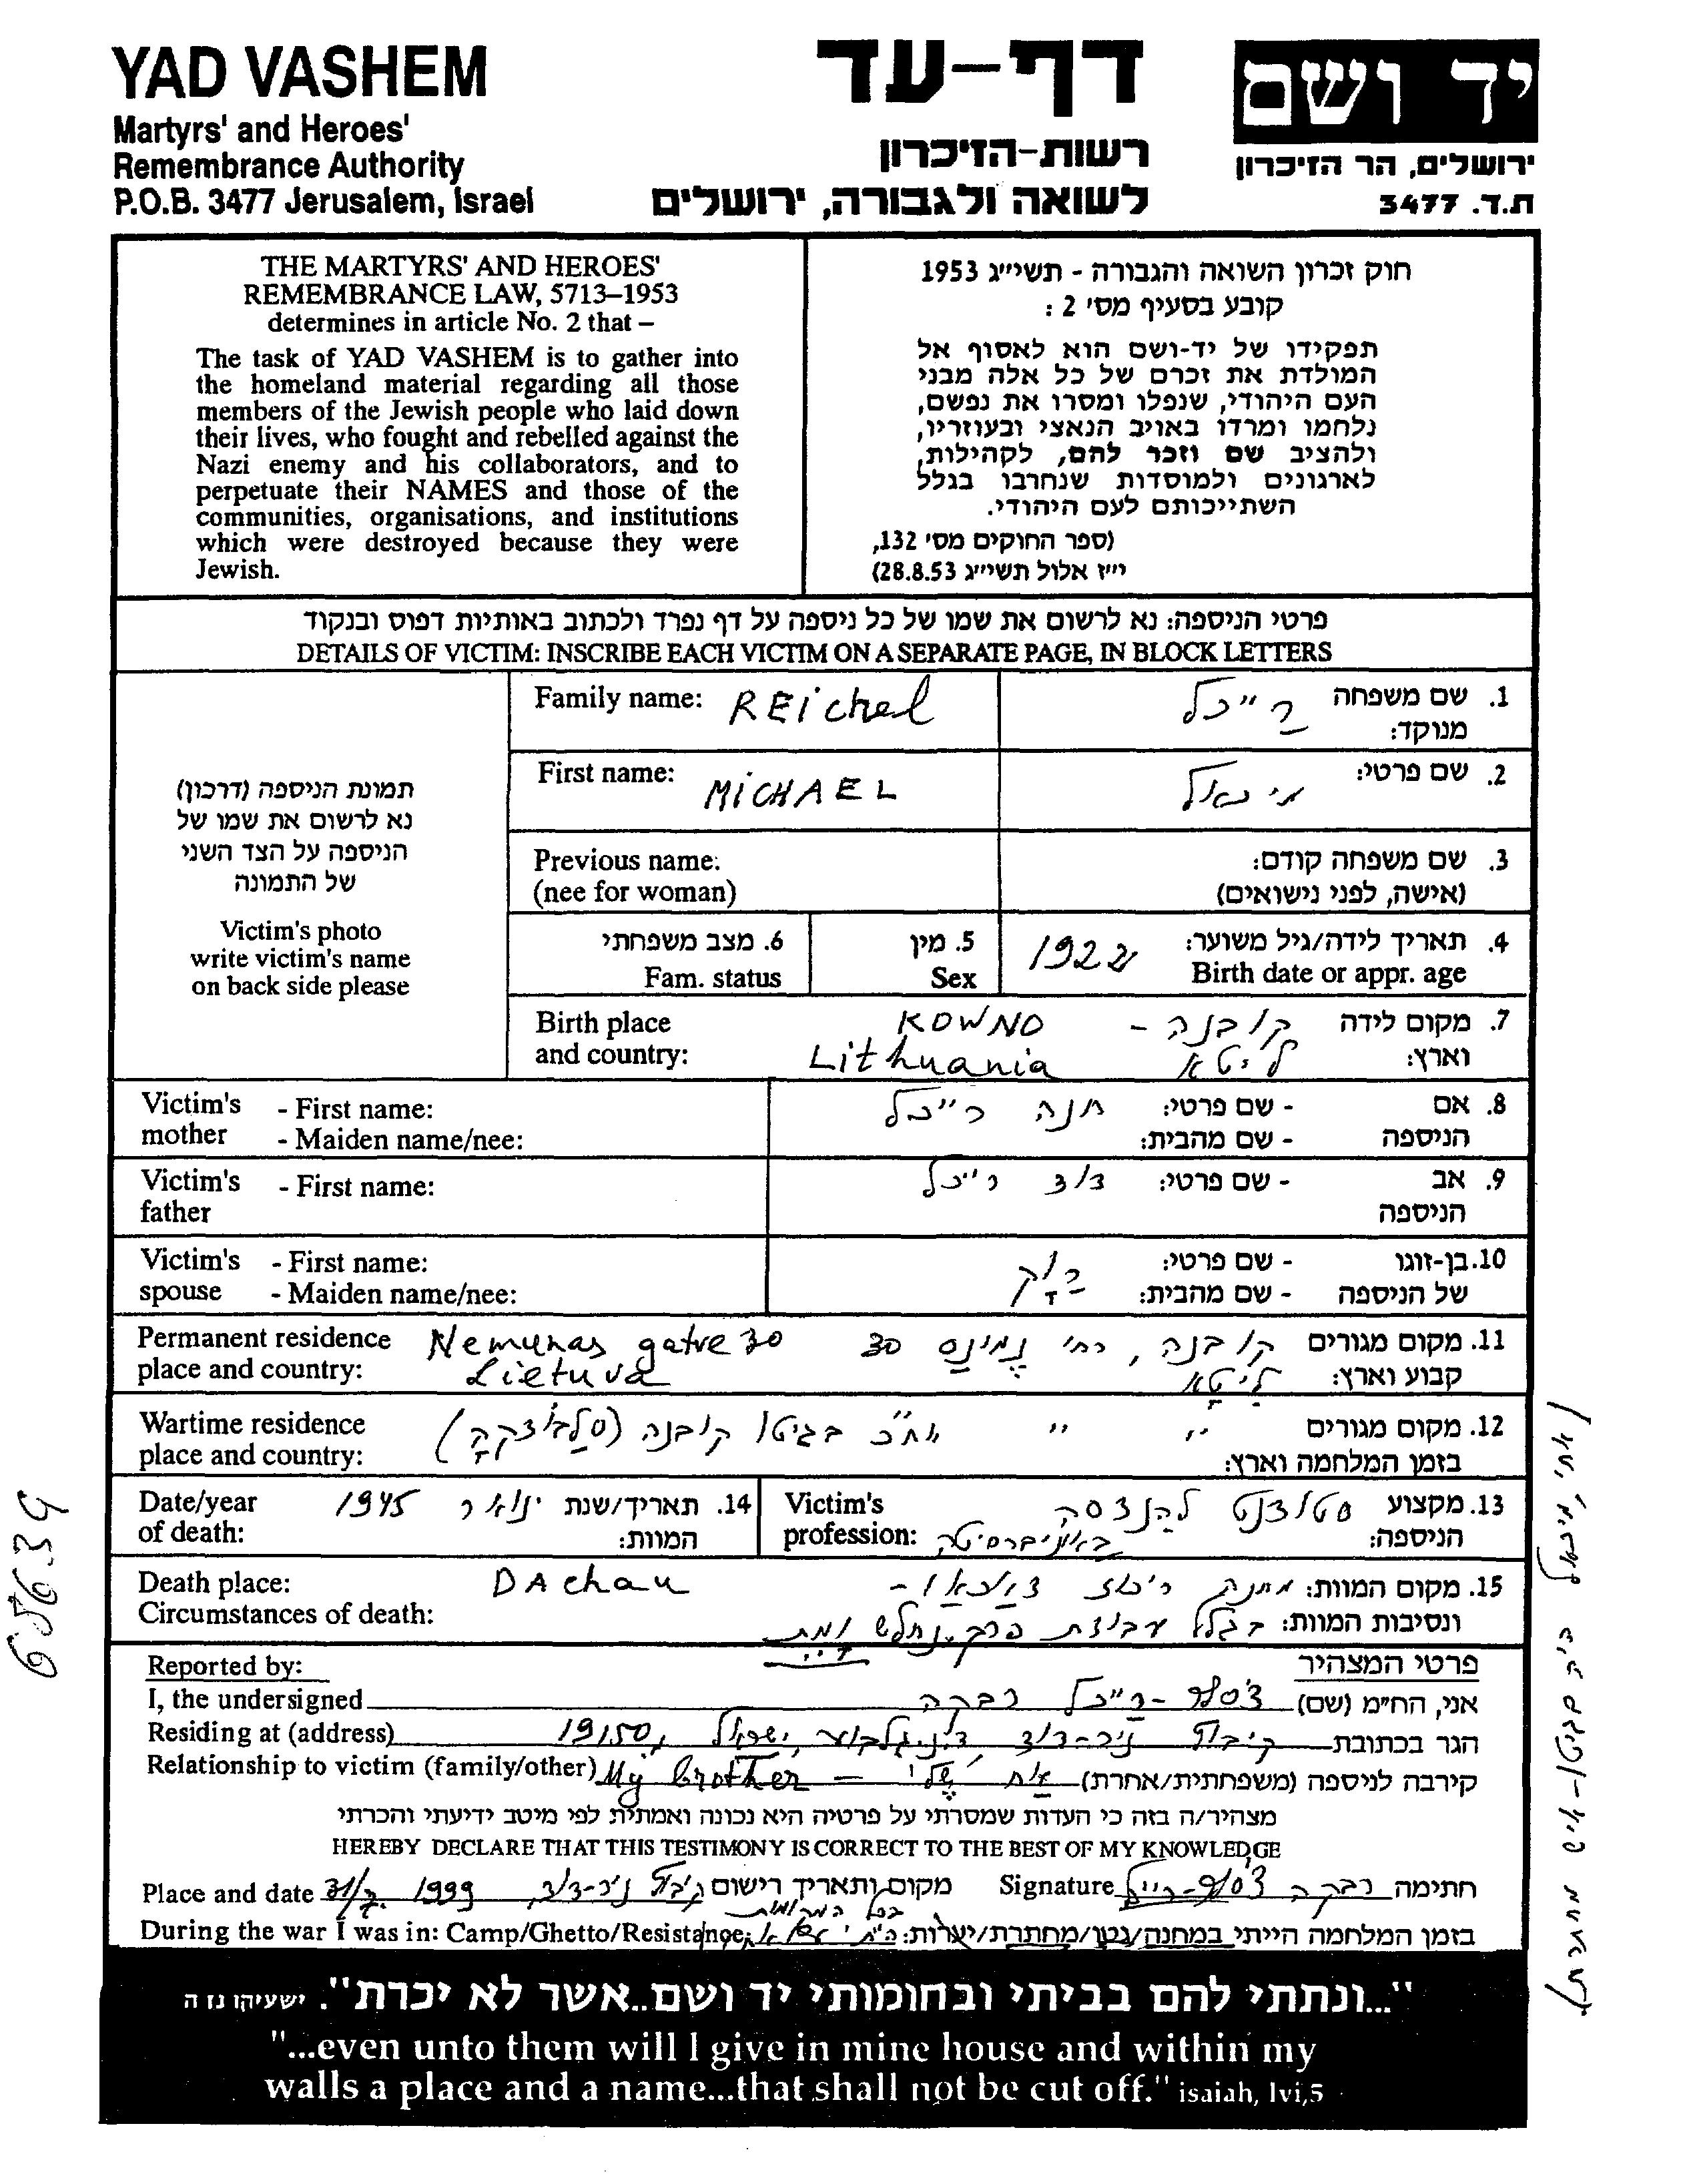 YAD VASHEM
Martyrs' and Heroes'
Remembrance Authority
P.O.B. 3477 Jerusalem, Israel
דף-עד
רשות-הזיכרון
לשואה ולגבורה, ירושלים
יד ושם
ירושלים, הר הזיכרון
ת.ד. 3477
THE MARTYRS' AND HEROES'
REMEMBRANCE LAW, 5713–1953
determines in article No. 2 that –
The task of YAD VASHEM is to gather into
the homeland material regarding all those
members of the Jewish people who laid down
their lives, who fought and rebelled against the
Nazi enemy and his collaborators, and to
perpetuate their NAMES and those of the
communities, organisations, and institutions
which were destroyed because they were
Jewish.
חוק זכרון השואה והגבורה - תשי״ג 1953
קובע בסעיף מס׳ 2 :
תפקידו של יד-ושם הוא לאסוף אל
המולדת את זכרם של כל אלה מבני
העם היהודי, שנפלו ומסרו את נפשם,
נלחמו ומרדו באויב הנאצי ובעוזריו,
ולהציב שם וזכר להם, לקהילות,
לארגונים ולמוסדות שנחרבו בגלל
השתייכותם לעם היהודי.
(ספר החוקים מס׳ 132,
י״ז אלול תשי״ג 28.8.53)
פרטי הניספה: נא לרשום את שמו של כל ניספה על דף נפרד ולכתוב באותיות דפוס ובנקוד
DETAILS OF VICTIM: INSCRIBE EACH VICTIM ON A SEPARATE PAGE, IN BLOCK LETTERS
תמונת הניספה (דרכון)
נא לרשום את שמו של
הניספה על הצד השני
של התמונה
Victim's photo
write victim's name
on back side please
Family name: REichel
1. שם משפחה מנוקד: רייכל
First name: MiCHAEL
2. שם פרטי: מיכאל
Previous name:
(nee for woman)
3. שם משפחה קודם:
(אישה, לפני נישואים)
6. מצב משפחתי
Fam. status
5. מין
Sex
4. תאריך לידה/גיל משוער: 1922
Birth date or appr. age
Birth place
and country: KOWNO
Lithuania
7. מקום לידה וארץ: קובנה -
ליטא
Victim's mother - First name:
- Maiden name/nee:
8. אם הניספה - שם פרטי: חנה רייכל
- שם מהבית:
Victim's father - First name:
9. אב הניספה - שם פרטי: דוד רייכל
Victim's spouse - First name:
- Maiden name/nee:
10. בן-זוגו של הניספה - שם פרטי:
- שם מהבית: רוק
Permanent residence
place and country: Nemunas gatve 30
Lietuva
11. מקום מגורים קבוע וארץ: קובנה, רח׳ נמונס 30
ליטא
Wartime residence
place and country:
12. מקום מגורים בזמן המלחמה וארץ: " " אח״כ בגיטו קובנה (סלבודקה)
Date/year
of death:
14. תאריך/שנת המוות: ינואר 1945
Victim's
profession:
13. מקצוע הניספה: סטודנט להנדסה
באוניברסיטה
Death place: DAchau
Circumstances of death:
15. מקום המוות: מחנה ריכוז דאכאו -
ונסיבות המוות: בגלל עבודת פרך, נחלש ומת
Reported by:
פרטי המצהיר
I, the undersigned
אני, הח״מ (שם) יוסף-רייכל רבקה
Residing at (address)
הגר בכתובת קיבוץ ניר-דוד ד.נ. גלבוע, ישראל, 19150
Relationship to victim (family/other) My brother – אח שלי קירבה לניספה (משפחתית/אחרת)
מצהיר/ה בזה כי העדות שמסרתי על פרטיה היא נכונה ואמתית לפי מיטב ידיעתי והכרתי
HEREBY DECLARE THAT THIS TESTIMONY IS CORRECT TO THE BEST OF MY KNOWLEDGE
Place and date 31/7. 1999 קיבוץ ניר-דוד מקום ותאריך רישום
Signature רבקה חתימה
During the war I was in: Camp/Ghetto/Resistance
בזמן המלחמה הייתי במחנה/גטו/מחתרת/יערות:
"...ונתתי להם בביתי ובחומותי יד ושם..אשר לא יכרת". ישעיהו נז ה
"...even unto them will I give in mine house and within my
walls a place and a name...that shall not be cut off." isaiah, lvi,5